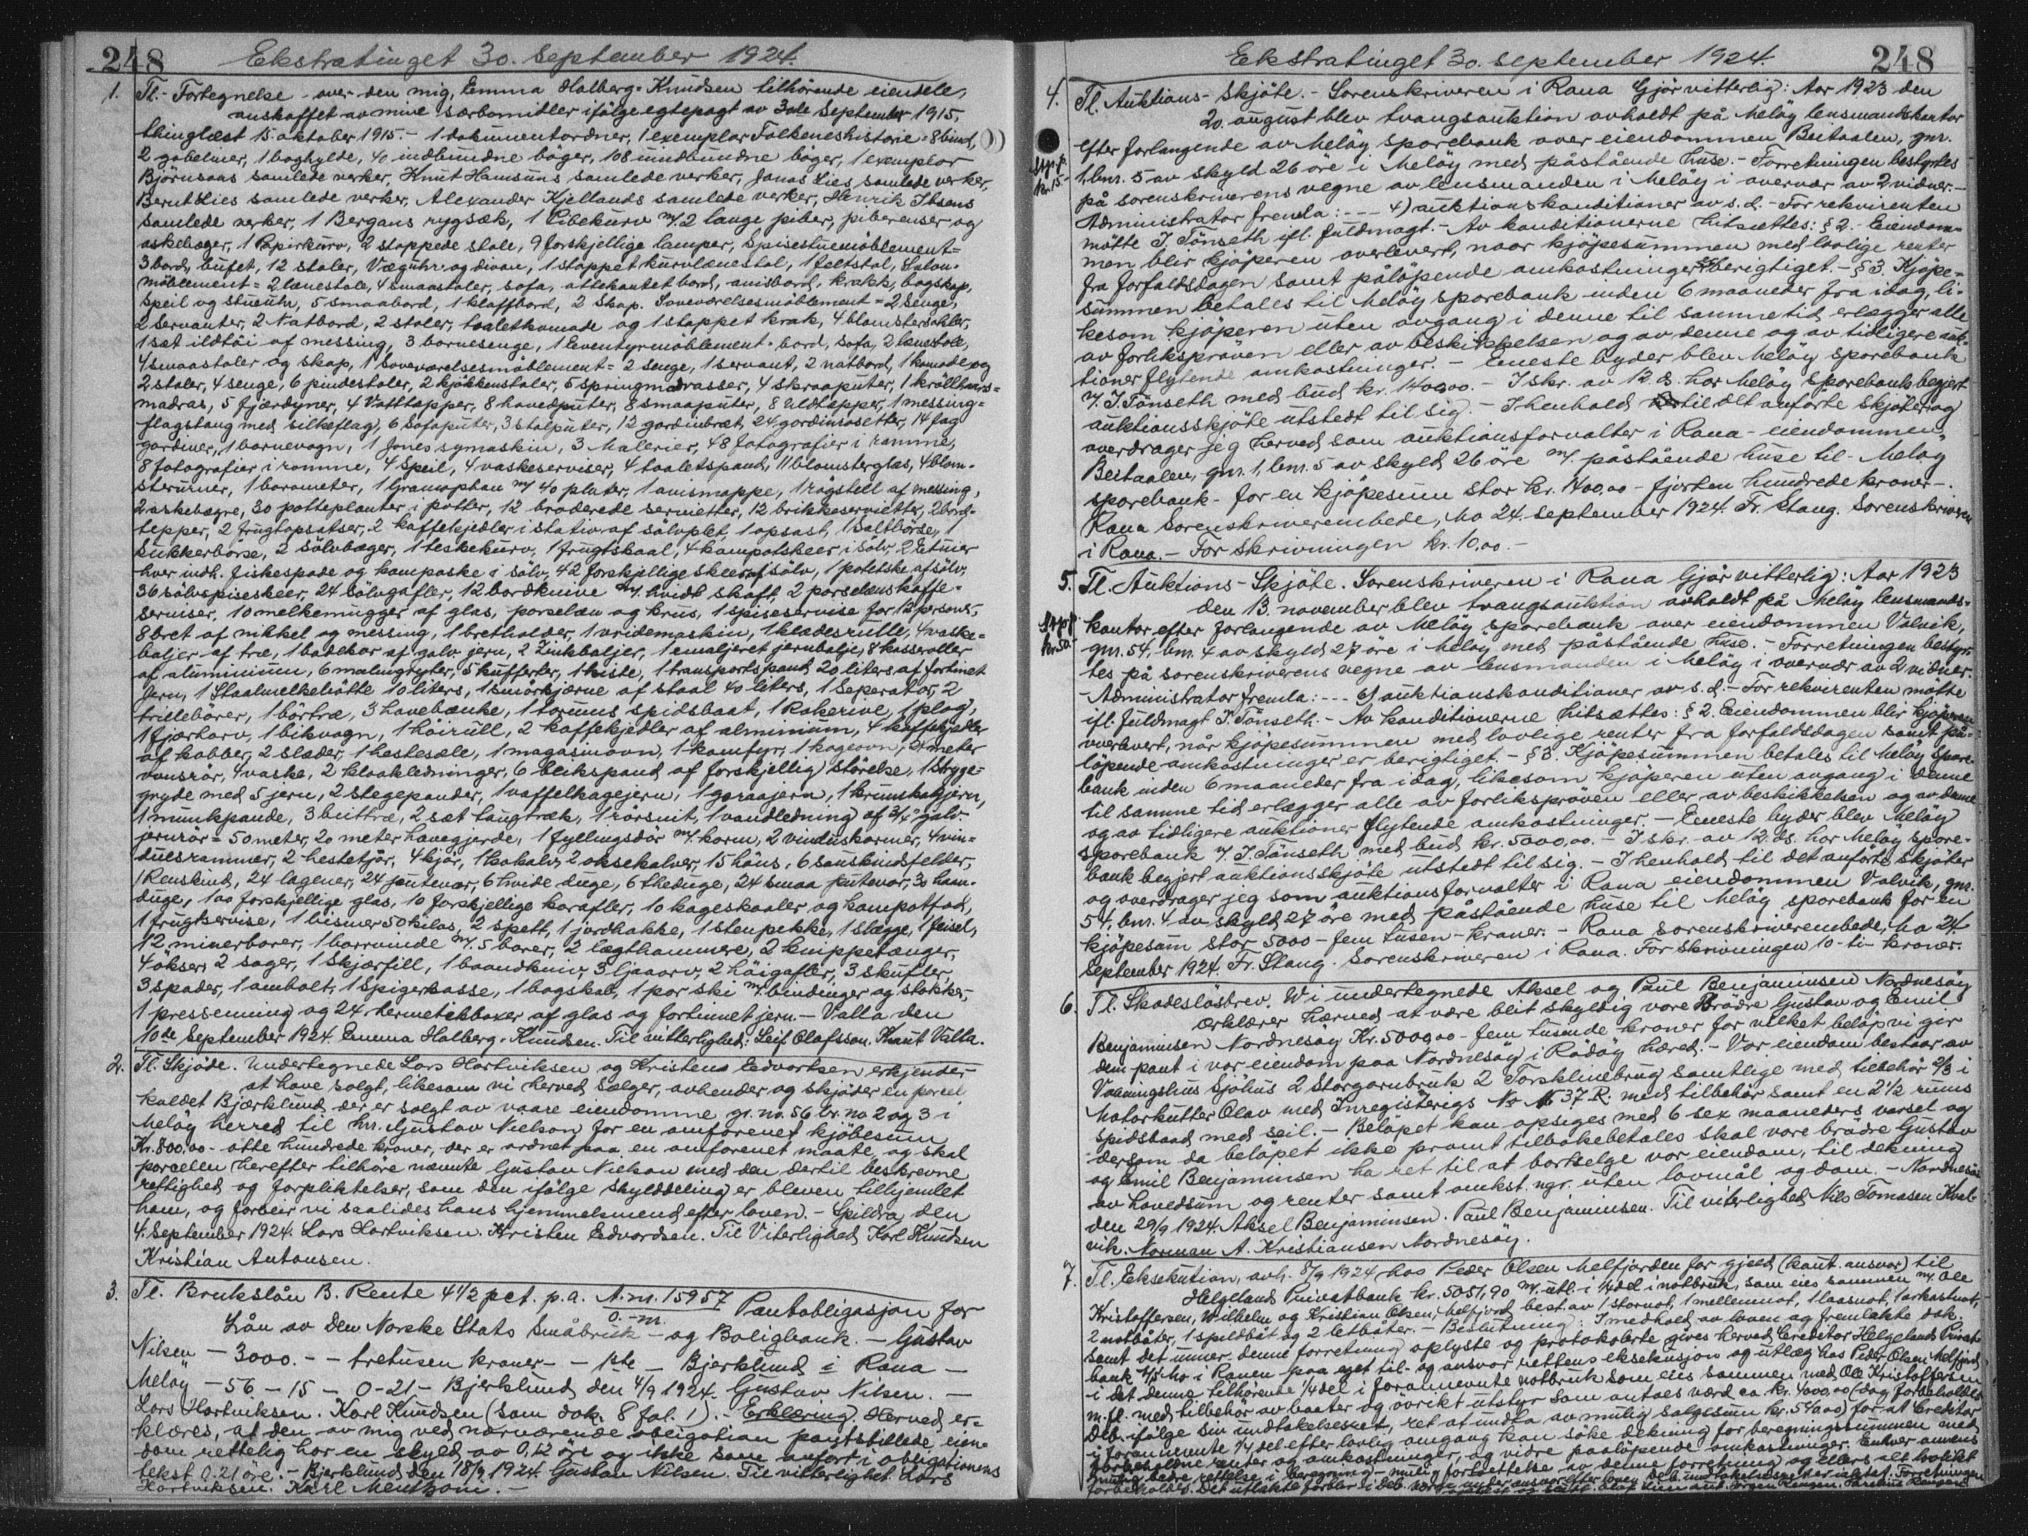 248 Ekstratinget 30. September 1924.
1. Tl. Fortegnelse over den mig, Emma Halberg-Knudsen tilhörende eiendele,
anskaffet av mine særbomidler ifölge egtepagt av 3die September 1915,
thinglæst 15 oktober 1915. - 1 dokumentordner, 1 exemplar Folkeneshistorie - 8 bind,
2 gobeliner, 1 boghylde, 40 indbundne böger, 108 uindbundne böger, 1 exemplar
Björnsons samlede verker, Knut Hamsuns samlede verker, Jonas Lies samlede verker,
Bernt Lies samlede verker, Alexander Kjellands samlede verker, Henrik Ibsens
samlede verker, 1 Bergans rygsæk, 1 Pibekurv m/. 2 lange piber, piberenser og
askebæger, 1 Papirkurv, 2 stoppede stole, 9 forskjellige lamper, Spisestuemöblement =
3 bord, bufet, 12 stoler, Væguhr og divan, 1 stoppet kurvlænestol, 1 feltstol, Salon-
möblement = 2 lænestole, 4 smaastoler, sofa, ottekantet bord, avisbord, krakk, bogskap,
speil og stueuhr, 5 smaabord, 1 klaffbord, 2 skap. Soveværelsesmöblement = 2 senge,
2 servanter, 2 Natbord, 2 stoler, toaletkomode og 1 stoppet krak, 4 blomstersokler,
1 sæt ildtöi af messing, 3 barnesenge, 1 Eventyrmöblement - bord, sofa, 2 lænestole,
4 smaastoler og skap, 1 Soveværelsesmöblement = 2 senge, 1 servant, 2 natbord, 1 komode og
2 stoler, 4 senge, 6 pindestoler, 2 kjökkenstoler, 5 springmadrasser, 4 skraaputer, 1 kröllhaars=
madras, 5 fjærdyner, 4 Vatttæpper, 8 hovedputer, 8 smaaputer, 8 Uldtæpper, 1 messing=
flagstang med silkeflag, 6 sofaputer, 3 stolputer, 12 gardinbræt, 24 gardinrosetter, 14 fag
gardiner, 1 barnevogn, 1 Jones symaskin, 3 Malerier, 48 fotografier i ramme,
8 fotografier i ramme, 4 speil, 4 vaskeserviser, 4 toaletspand, 11 blomsterglas, 4 blom-
sterurner, 1 barometer, 1 Gramophon m/ 40 plater, 1 avismappe, 1 rögstell af messing,
2 askebægre, 30 potteplanter i potter, 12 broderede servietter, 12 brikkeservietter, 2 bord-
tepper, 2 frugtopsatser, 2 kaffekjedler i stativ af sölvplet, 1 opsast, 1 Saltbörse, 1
Sukkerbörse, 2 sölvbæger, 1 teskekurv, 1 frugtskaal, 4 kompotskeer i sölv, 2 Etuier
hver indh. fiskespade og kampaske i sölv, 42 forskjellige skeer af sölv, 1 potetske af sölv,
36 sölvspiseskeer, 24 Sölvgafler, 12 bordknive m/. hvidt skaft, 2 porselænskaffe-
serviser, 10 melkemugger af glas, porcelæn og krus, 1 spiseservise for 12 persons,
8 bret af nikkel og messing, 1 bretholder, 1 vridemaskin, 1 klædesrulle, 4 vaske=
baljer af træ, 1 badekar af galv. jern, 2 Zinkbaljer, 1 emaljeret jernbalje, 8 kasseroller
af aluminium, 6 malmgryter, 5 kufferter, 1 kiste, 1 transportspand 20 liters af fortinnet
Jern, 1 Staalmelkebötte 10 liters, 1 smörkjærne af staal 40 liters, 1 Seperator, 2
trillebörer, 1 börtræ, 3 havebænke, 1 torums spidsbaat, 1 Rakerive, 1 plog,
1 fjærharv, 1 bikvogn, 1 höirull, 2 kaffekjedler af alminium, 4 kaffekjedler
af kobber, 2 slæder, 1 hestesæle, 1 magasinovn, 1 komfyr, 1 kogeovn, 2 meter
ovnsrör, 4 vaske, 2 kloakledninger, 6 blikspand af forskjellig störelse, 1 Stryge-
gryde med 5 jern, 2 stegepander, 1 vaffelkagejern, 1 goraajern, 1 krumkakjern,
1 munkpande, 3 buttræ, 2 sæt taugtræk, 1 rörsnit, 1 vandledning af 3/4 galv.
jernrör = 50 meter, 20 meter havegjerde, 1 fyllingsdör m/. karm, 2 vinduskarmer, 4 vin=
duesrammer, 2 hestetjör, 4 kjör, 1 kokalv, 2 oksekalver, 15 höns, 6 saueskindsfelder,
1 Renskind, 24 lagener, 24 putevar, 6 hvide duge, 6 theduge, 24 smaa putevar, 30 haan-
duge, 100 forskjellige glas, 10 forskjellige karafler, 10 kageskaaler og kompotfad,
1 frugtservise, 1 bismer 50 kilos, 2 spett, 1 jordhakke, 1 stenpekke, 1 slægge, 1 feisel,
12 minerborer, 1 borrvinde m/. 5 borer, 2 lægthammere, 2 knippetænger,
4 ökser, 2 sager, 1 Skjærfill, 1 baandkniv, 3 ljaaorv, 2 höigafler, 3 skufler,
3 spader, 1 ambolt, 1 Spigerkasse, 1 bogskab, 1 par ski m/. bindinger og stokker,
1 pressenning og 24 hermetikbokser af glas og fortinnet jern. - Valla den
10de September 1924. Emma Halberg-Knudsen. Til vitterlighed: Leif Olafsson. Knut Valla.
2. Tl. Skjöde. Undertegnede Lars Hartviksen og Kristens Edvartsen erkjender
at have solgt, likesom vi herved sælger, avhender og skjöter en parcel
kaldet Bjærklund, der er solgt av vaare eiendomme gr. no. 56 br. no 2 og 3 i
Melöy herred til hrr. Gustav Nielson for en omforenet kjöbesum
Kr. 800,00 - otte hundrede kroner, der er ordnet paa en omforenet maate, og skal
porcellen herefter tilhöre nævnte Gustav Nielson med den dertil beskrevne
rettighed og forpliktelser, som den ifölge skylddeling er bleven tillhjemlet
ham, og forbeir vi saalides hans hjemmelsmend efter loven. - Spildra den
4. September 1924. Lars Hartviksen. Kristen Edvardsen. Til Viterlighed Karl Knudsen
Kristian Antonsen.
3. Tl. Brukslån B. Rente 4 1/2 pct. p.a. A. nr. 15957 Pantobligasjon for
0.-m.
Lån av Den Norske Stats Småbruk- og Boligbank. - Gustav
Nilsen - 3000. - - tretusen kroner - - pte - Bjerklund i Rana -
Meløy - 56 - 15 - 0-21 - Bjerklund den 4/9 1924. Gustav Nilsen. -
Lars Hartviksen. Karl Knudsen (som dok. 8 fol. 1). - Erklæring. Herved er-
klæres, at den av mig ved nærværende obligation pantstillede eien-
dom rettelig har en skyld av 0,12 öre og ikke som anført i obligationens
tekst 0.21 öre. - Bjerklund, den 18/9 1924. Gustav Nilsen. Til vitterlighet: Lars
Hartviksen. Karl Mentzoni. -
Ekstratinget 30. september 1924. 248
4. Tl. Auktions-Skjöte. - Sorenskriveren i Rana Gjör vitterlig: Aar 1923 den
20. august blev tvangsauktion avholdt på Meløy lensmandskontor
efter forlangende av Meløy sparebank over eiendommen Beitaalen, gnr.
1, bnr. 5 av skyld 26 öre i Meløy med påstående huse. - Forretningen bestyrtes
på sorenskriverens vegne av lensmanden i Meløy i overvær av 2 vidner. -
Administrator fremla: --- 4) auktionskonditioner av s. d. - For rekvirenten
mötte J. Tönseth ifl. fuldmagt. - Av konditionerne hitsættes: § 2. Eiendom-
men blir kjöperen overlevert, naar kjöpesummen med lovlige renter
fra forfaldsdagen samt pålöpende omkostninger er berigtiget. - § 3. Kjöpe=
summen betales til Meløy sparebank inden 6 maaneder fra idag, li-
kesom kjöperen uten avgang i denne til samme tid erlægger alle
av forliksprøven eller av beskikkelsen og av denne og av tidligere auk-
tioner flytende omkostninger. - Eneste byder blev Meløy sparebank
v. J. Tönseth med bud kr. 1400,00. - I skr. av 12. ds. har Meløy sparebank begjert
auktionsskjöte utstedt til sig. - I henhold til det anförte skjöter og
overdrager jeg herved som auktionsforvalter i Rana - eiendommen
Beitaalen, gnr. 1, bnr. 5 av skyld 26 öre m/. påstående huse til Meløy
sparebank for en kjöpesum stor kr. 1400,00 - fjorten hundrede kroner -.
Rana Sorenskriverembede, Mo 24. september 1924. Fr. Stang. Sorenskriveren
i Rana. - For skrivningen kr. 10,00. -
5. Tl. Auktions-Skjöte. Sorenskriveren i Rana Gjör vitterlig: Aar 1923
den 13. november blev tvangsauktion avholdt på Meløy lensmands-
kontor efter forlangende av Meløy sparebank over eiendommen Valvik,
gnr. 54, bnr. 4 av skyld 27 öre i Meløy med påstående huse. - Forretningen bestyr-
tes på sorenskriverens vegne av lensmanden i Meløy i overvær av 2 vidner.
Administrator fremla: --- 6) auktionskonditioner av s. d. - For rekvirenten mötte
ifl. fuldmagt J. Tönseth. - Av konditionerne hitsættes: § 2. Eiendommen blir kjöperen
overlevert, når kjöpesummen med lovlige renter fra forfaldsdagen samt på-
löpende omkostninger er berigtiget. - § 3. Kjöpesummen betales til Meløy spare-
bank inden 6 maaneder fra idag, likesom kjöperen uten avgang i denne
til samme tid erlægger alle av forliksprøven eller av beskikkelsen og av denne
og av tidligere auktioner flytende omkostninger. - Eneste byder blev Meløy
sparebank v. J. Tönseth med bud kr. 5000,00. - I skr. av 12. ds. har Meløy spare-
bank begjert auktionsskjöte utstedt til sig. - I henhold til det anförte skjöter
og overdrager jeg som auktionsforvalter i Rana eiendommen Valvik, gnr.
54, bnr. 4 av skyld 27 öre med påstående huse til Meløy sparebank for en
kjöpesum stor 5000 - fem tusen - kroner. - Rana sorenskriverembede, Mo 24.
September 1924. Fr. Stang. Sorenskriveren i Rana. For skrivningen 10 - ti - kroner.
6. Tl. Skadeslösbrev. Wi undertegnede Aksel og Paul Benjaminsen Nordnesøy
erklærer hærved at være blit skyldig vore Brødre Gustav og Emil
Benjaminsen Nordnesøy Kr. 5000,00 - fem tusende kroner for vilket beløp vi gir
dem pant i vor eiendom paa Nordnesøy i Rödöy hæred. - Vor eiendom bestaar av
Vaaningshus Sjøhus 2 Storgarnbruk 2 Torsklinebrug samtlige med tilbehör 2/3 i
Motorkutter Olav med Inregisterigs No N 37. R. med tilbehör samt en 2 1/2 rums
Spidsbaad med seil. - Beløpet kan opsiges med 6 sex maaneders varsel og
dersom da beløpet ikke promt tilbakebetales skal vore brødre Gustav
og Emil Benjaminsen ha ret til at bortselge vor eiendom, til dekning
av hovedsum og renter samt omkst. ngr. uten lovmål og dom. - Nordnesøy
den 29/9 1924. Aksel Benjaminsen. Paul Benjaminsen. Til viterlighed Nils Tomasen Kval-
vik. Norman A. Kristiansen Nordnesøy.
7. Tl. Eksekution, avh. 8/9 1924 hos Peder Olsen Melfjorden for gjeld (kaut. ansvar) til
Helgelands Privatbank kr. 5051,90 m/. utl. i 1/4 del i notbruk, som eies sammen m/. Ole
Kristoffersen, Wilhelm og Kristian Olsen, Melfjord, best. av 1 stornot, 1 mellemnot, 1 laasnot, 1 orkastnot,
2 notbåter, 1 spildbåt og 2 letbåter. - Beslutning: I medhold av loven og fremlakte dok.
samt det under denne forretning oplyste og protokolerte gives herved Creditor Helgelands Privat-
bank A/S Mo i Ranen paa eget til- og ansvar rettens eksekusjon og utlæg hos Peder Olsen Melfjord
i det denne tilhörende 1/4 del i forannævnte notbruk som eies sammen med Ole Kristoffersen
m. fl. med tilbehör av baater og övrikt utstyr som antaes værd ca kr. 4000,00 (dog forbeholdes
Deb. ifölge sin undtakelsesket, ret at undta av mulig salgssum kr. 500,00) for at Creditor
i forannævnte 1/4 del efter lovlig omgang kan söke dekning for beregningssummen med
forbeholdne renter og omkostninger, og videre paalöpende omkostninger. Enhver annens
mulig bedre rettelse i beregning - mulig fortsettelse av denne forretning og ellers alt lovlikt
forbeholdes. Det utlakte forblir i deb. værge under ansvar efter loven.